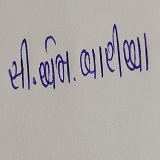 સી.એમ. બારીઆ